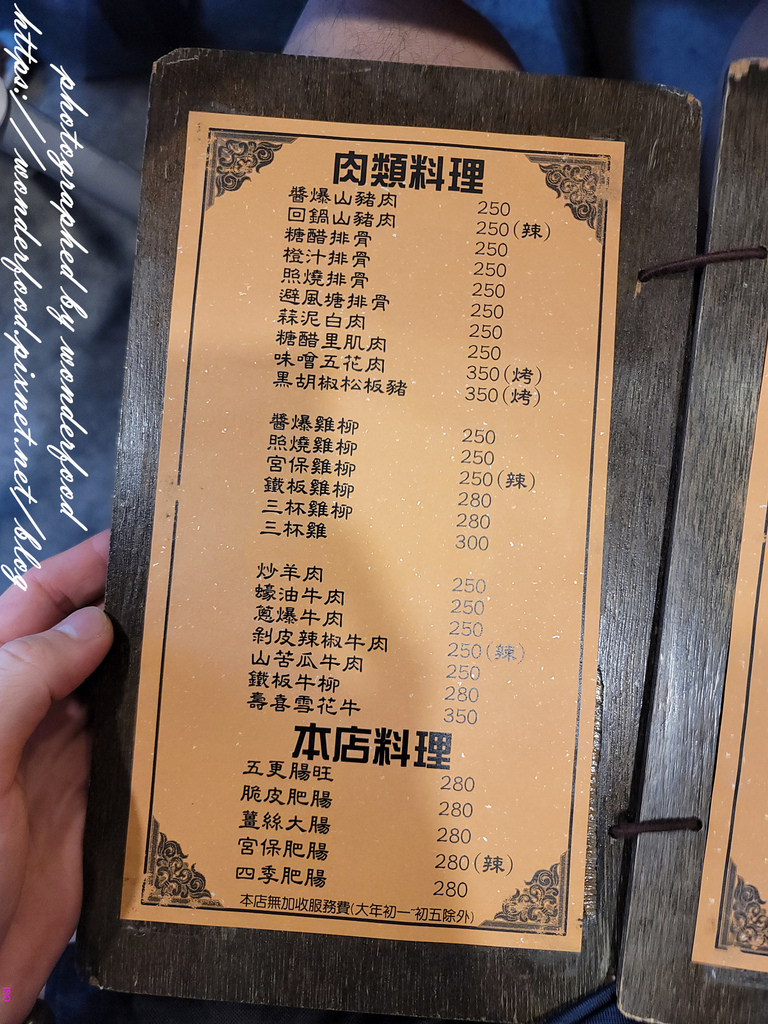 photographed by wonderfood
https://wonderfood.pixnet.net/blog
肉類料理
醬爆山豬肉 250
回鍋山豬肉 250(辣)
糖醋排骨 250
橙汁排骨 250
照燒排骨 250
避風塘排骨 250
蒜泥白肉 250
糖醋里肌肉 250
味噲五花肉 350(烤)
黑胡椒松板豬 350(烤)
醬爆雞柳 250
照燒雞柳 250
宮保雞柳 250(辣)
鐵板雞柳 280
三杯雞柳 280
三杯雞 300
炒羊肉 250
蠔油牛肉 250
蔥爆牛肉 250
剝皮辣椒牛肉 250(辣)
山苦瓜牛肉 250
鐵板牛柳 280
壽喜雪花牛 350
本店料理
五更腸旺 280
脆皮肥腸 280
薑絲大腸 280
宮保肥腸 280(辣)
四季肥腸 280
本店無加收服務費(大年初一~初五除外)